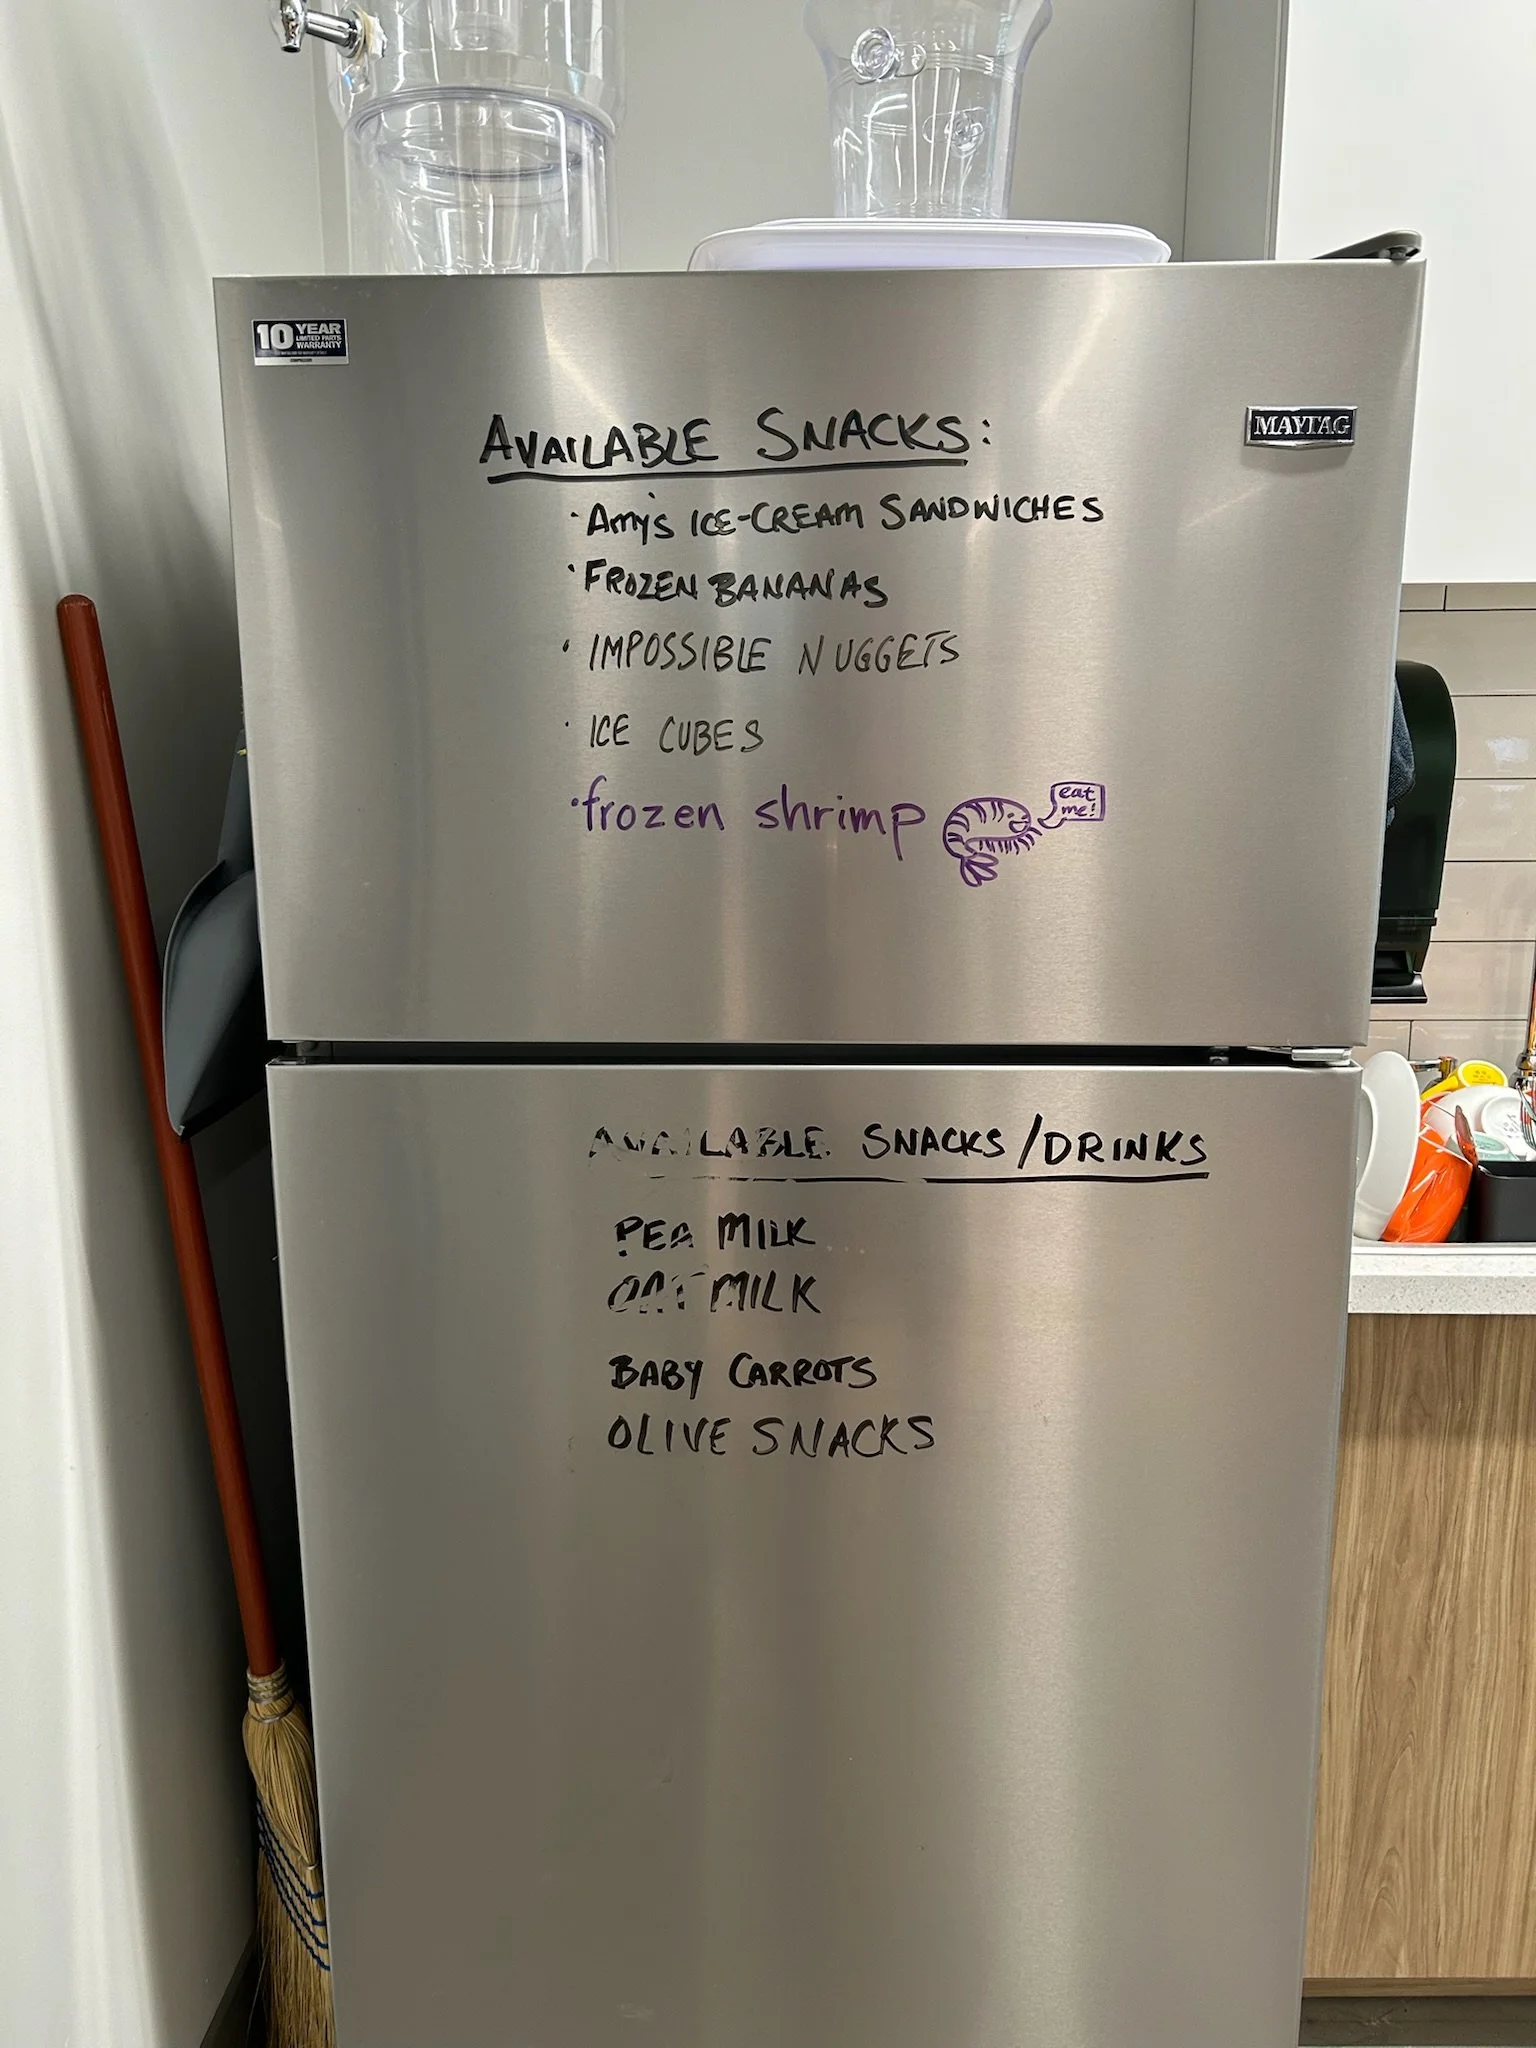 10 YEAR
LIMITED PARTS
WARRANTY
COMPRESSOR
MAYTAG
AVAILABLE SNACKS:
· Amy's ICE-CREAM SANDWICHES
· FROZEN BANANAS
· IMPOSSIBLE NUGGETS
· ICE CUBES
· frozen shrimp
eat
me!
AVAILABLE SNACKS/DRINKS
PEA MILK
OAT MILK
BABY CARROTS
OLIVE SNACKS